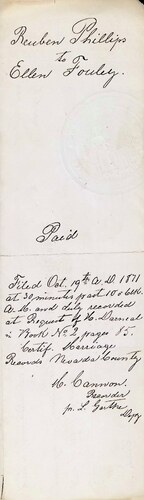 Reuben Phillips
to
Ellen Fouley.
Paid
Filed Oct. 19th A.D. 1871
at 30 minutes past 10 o'clk.
A.M. and duly recorded
at Request of H. Darneal
in Book No 2, pages 85.
Certif. Marriage
Records Nevada County
H. Cannon.
Recorder
pr. L. Garthe
Depy